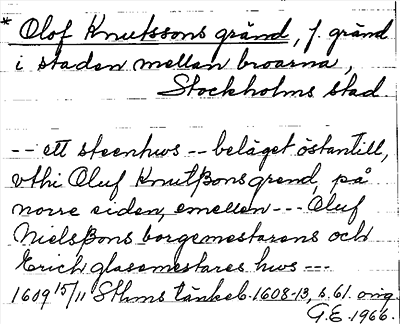 * Olof Knutssons gränd, f. gränd
i staden mellan broarna,
Stockholms stad
-- ett steenhws -- beläget östantill,
vthi Oluf Knutßonsgrend, på
norre siden, emellen --- Oluf
Nielsßons borgemestarens och
Erich glasemestares hws ---
1609 15/11 Sthms tänkeb. 1608-13, s. 61. orig.
G.E. 1966.